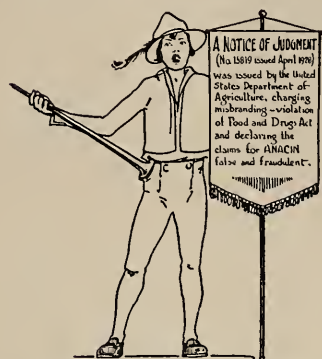 A NOTICE OF JUDGMENT
(No. 15819 issued April 1928)
was issued by the United
States Department of
Agriculture, charging
misbranding-violation
of Food and Drugs Act
and declaring the
claims for ANACIN
false and fraudulent.